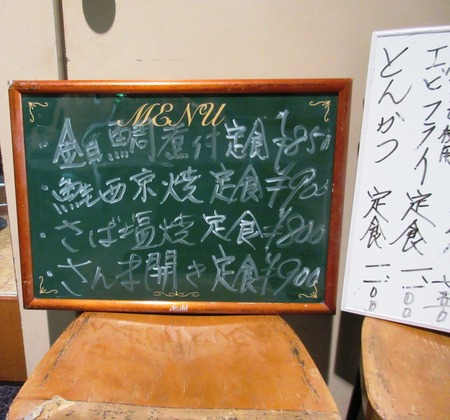 MENU
金目鯛煮付定食 ¥850
・鮭西京焼定食 ¥900
・さば塩焼定食 ¥800
・さんま開き定食 ¥900
Asahi
エビフライ定食 一、一00
とんかつ 定食 一、一00